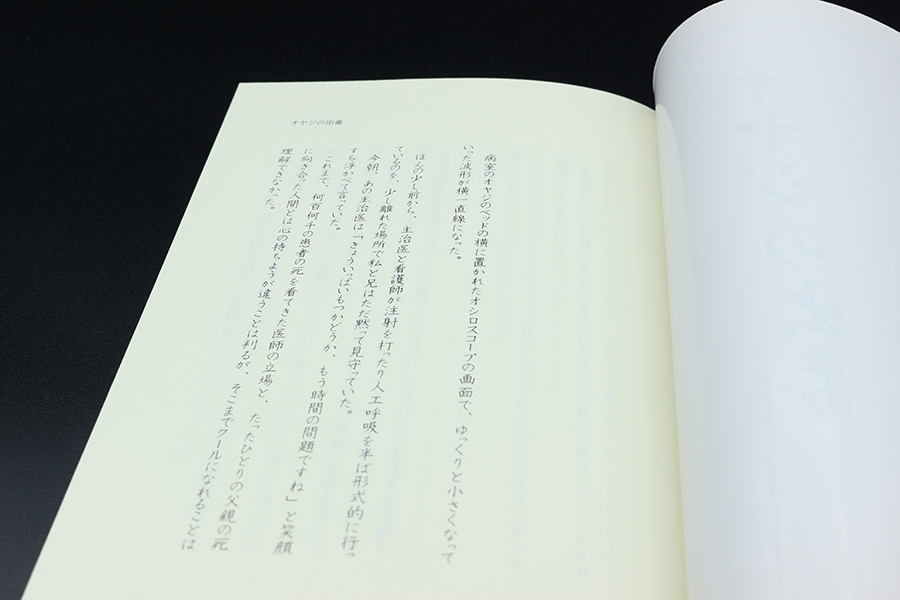 オヤジの出番
病室のオヤジのベッドの横に置かれたオシロスコープの画面で、ゆっくりと小さくなって
いった波形が横一直線になった。
ほんの少し前から、主治医と看護師が注射を打ったり人工呼吸を半ば形式的に行っ
ているのを、少し離れた場所で私と兄はただ黙って見守っていた。
今朝、あの主治医は「きょういっぱいもつかどうか、もう時間の問題ですね」と笑顔
すら浮かべて言っていた。
これまで、何百何千の患者の死を看てきた医師の立場と、たったひとりの父親の死
に向き合った人間とは心の持ちようが違うことは判るが、そこまでクールになれることは
理解できなかった。
オヤジの出番